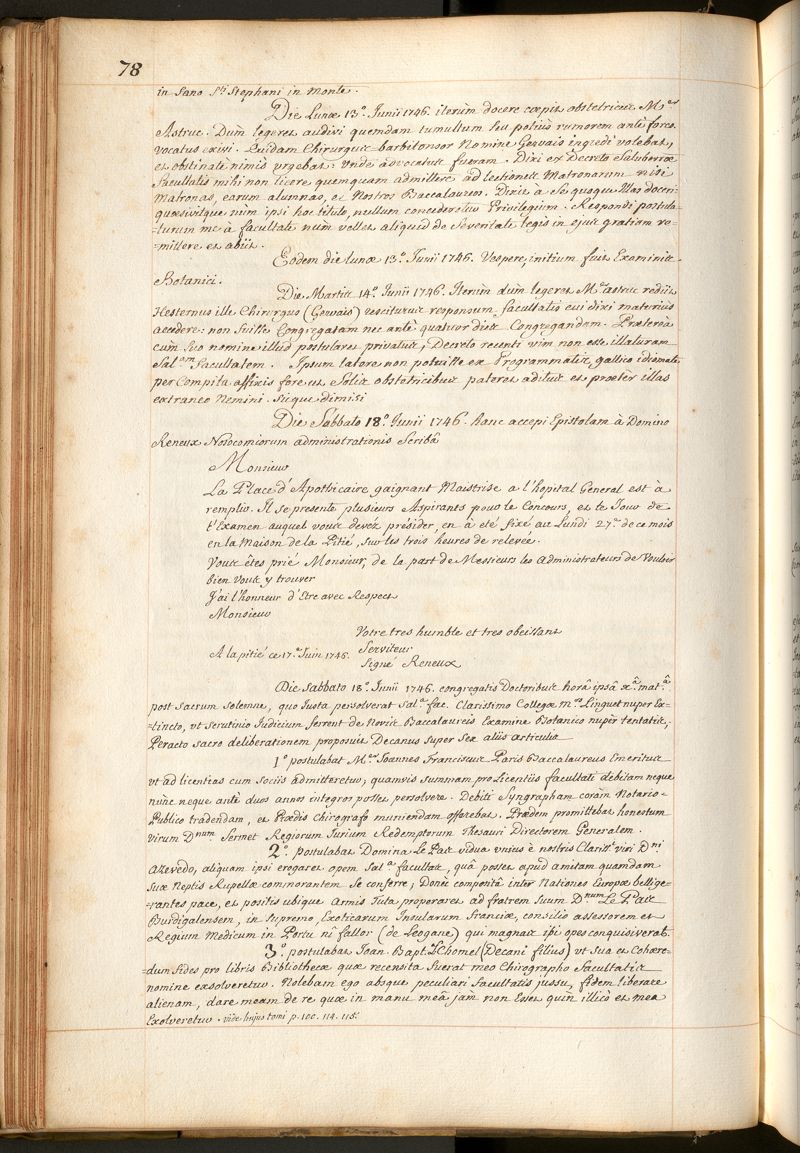 78
in Sano S.ti Stephani in monte.
Die Lunæ 13.º Junii 1746. iterùm docere cœpit obstetrices M.er
Astruc. Dum legeret audivi quemdam tumultum seu potiùs rumorem antè fores.
vocatus exivi. Quidam Chirurgus barbitonsor Nomine Gervais ingredi volebat,
et obstinatè nimis urgebat: unde advocatus fueram. Dixi ex Decreto Saluberrimæ
facultatis mihi non licere quemquam admittere ad lectiones Matronarum nisi
Matronas, earum alumnas, et Nostros Baccalaureos. Dixit à Se quoque illas doceri
quæsivitque nùm ipsi hoc titulo, nullum concederetur Privilegium. Respondi postula-
=turum me à facultate num vellet aliquid de Severitate legis in ejus gratiam re-
=mittere et abiit.
Eodem die lunæ 13.º Junii 1746. Vesperè, initium fuit Examinis
Botanici.
Die Martis 14.º Junii 1746. Iterùm dùm legeret M.er astruc rediit
Hesternus ille Chirurgus (Gervais) resciturus responsum facultatis cui dixi maturiùs
accedere: non fuisse Congregatam nec antè quatuor dies Congregandam. Prætereà
cùm suo nomine illud postularet privatus, Decreto recenti vim non esse illaturam
Sal.am Facultatem. Ipsum latere non potuisse ex Programmatis gallico idiomate
per Compita affixis fore ut Solis obstetricibus pateret aditus et præter illas
extraneo Nemini. Sicque dimisi
Die Sabbato 18.º Junii 1746. hanc accepi Epistolam à Domino
Reneux Nosocomiorum administrationis Scribâ
Monsieur
La Place d'Apothicaire gaignant Maistrise a l'hopital General est à
remplir. Il se presente plusieurs Aspirants pour le Concours, et le Jour de
l'Examen auquel vous devéz présider, en à été fixé au Lundi 27.e de ce mois
en la Maison de la Pitié, sur les trois heures de relevée.
Vous êtes prié Monsieur, de la part de Messieurs les Administrateurs de Vouloir
bien vous y trouver
J'ai l'honneur d'Etre avec Respect
Monsieur
Votre tres humble et tres obeissant
A la pitié ce 17.e Juin 1746. Serviteur
Signé Reneux
Die Sabbato 18.º Junii 1746. congregatis Doctoribus horâ ipsâ x.â mat.â
post Sacrum Solemne, quo Iusta persolverat Sal.a fac. Clarissimo Collegæ m.ro Linguet nuper Ex-
=tincto, ut scrutinio Iudicium ferrent de Novis Baccalaureis Examine Botanico nupèr tentatis,
Peracto sacro deliberationem proposuit Decanus super Sex aliis articulis
1.º postulabat M.er Joannes Franciscus Paris Baccalaureus Emeritus
ut ad licentias cum sociis admitteretur; quamvis summam pro Licentiis facultati debitam neque
nùnc neque antè duos annos integros posset persolvere. Debiti Syngrapham coràm Notario-
Publico tradendam, et Prædis Chirografo muniendam offerebat. Prædem promittebat honestum
virum D.num Sermet Regiorum Jurium Redemptorum Thesauri Directorem Generalem.
2.º postulabat Domina Le Pas vidua unius è nostris Clariss.i viri D.ni
Azevedo, aliquam ipsi erogaret opem Sal.a facultas, quâ posset apud amitam quamdam
Suæ Neptis Rupellæ commorantem se conferre; Donec compositâ inter Nationes Europæ bellige-
=rantes pace, et positis ubique armis Tuta properaret ad fratrem suum D.num Le Pas
Burdigalensem, in supremo, Exoticarum Insularum Franciæ, consilio assessorem et
Regium Medicum in Portu ni fallor (de Leogane) qui magnas ibi opes conquisiverat.
3.º postulabat Joan. Bapt. L. Chomel (Decani filius) ut sua et Cohære-
dum fides pro libris Bibliothecæ quæ recensita fuerat meo Chirographo facultatis
nomine exsolveretur. Nolebam ego absque peculiari facultatis jussu, fidem liberare
alienam, dare meam de re quæ in manu meâ jam non Esset quin illicò et mea
Exolveretur. vide hujus tomi p. 100. 114. 115.